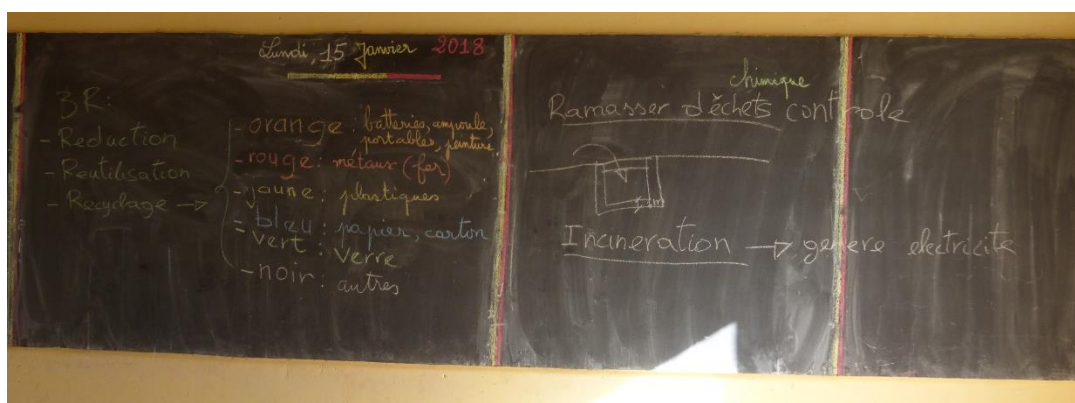 Lundi, 15 Janvier 2018
3R:
- Reduction
- Reutilisation
- Recyclage →
- orange : batteries, ampoule,
portables, peinture.
- rouge: métaux (fer)
- jaune : plastiques
- bleu : papier, carton
- vert : verre
- noir : autres
chimique
Ramasser déchets controle
Incineration → genere electricite